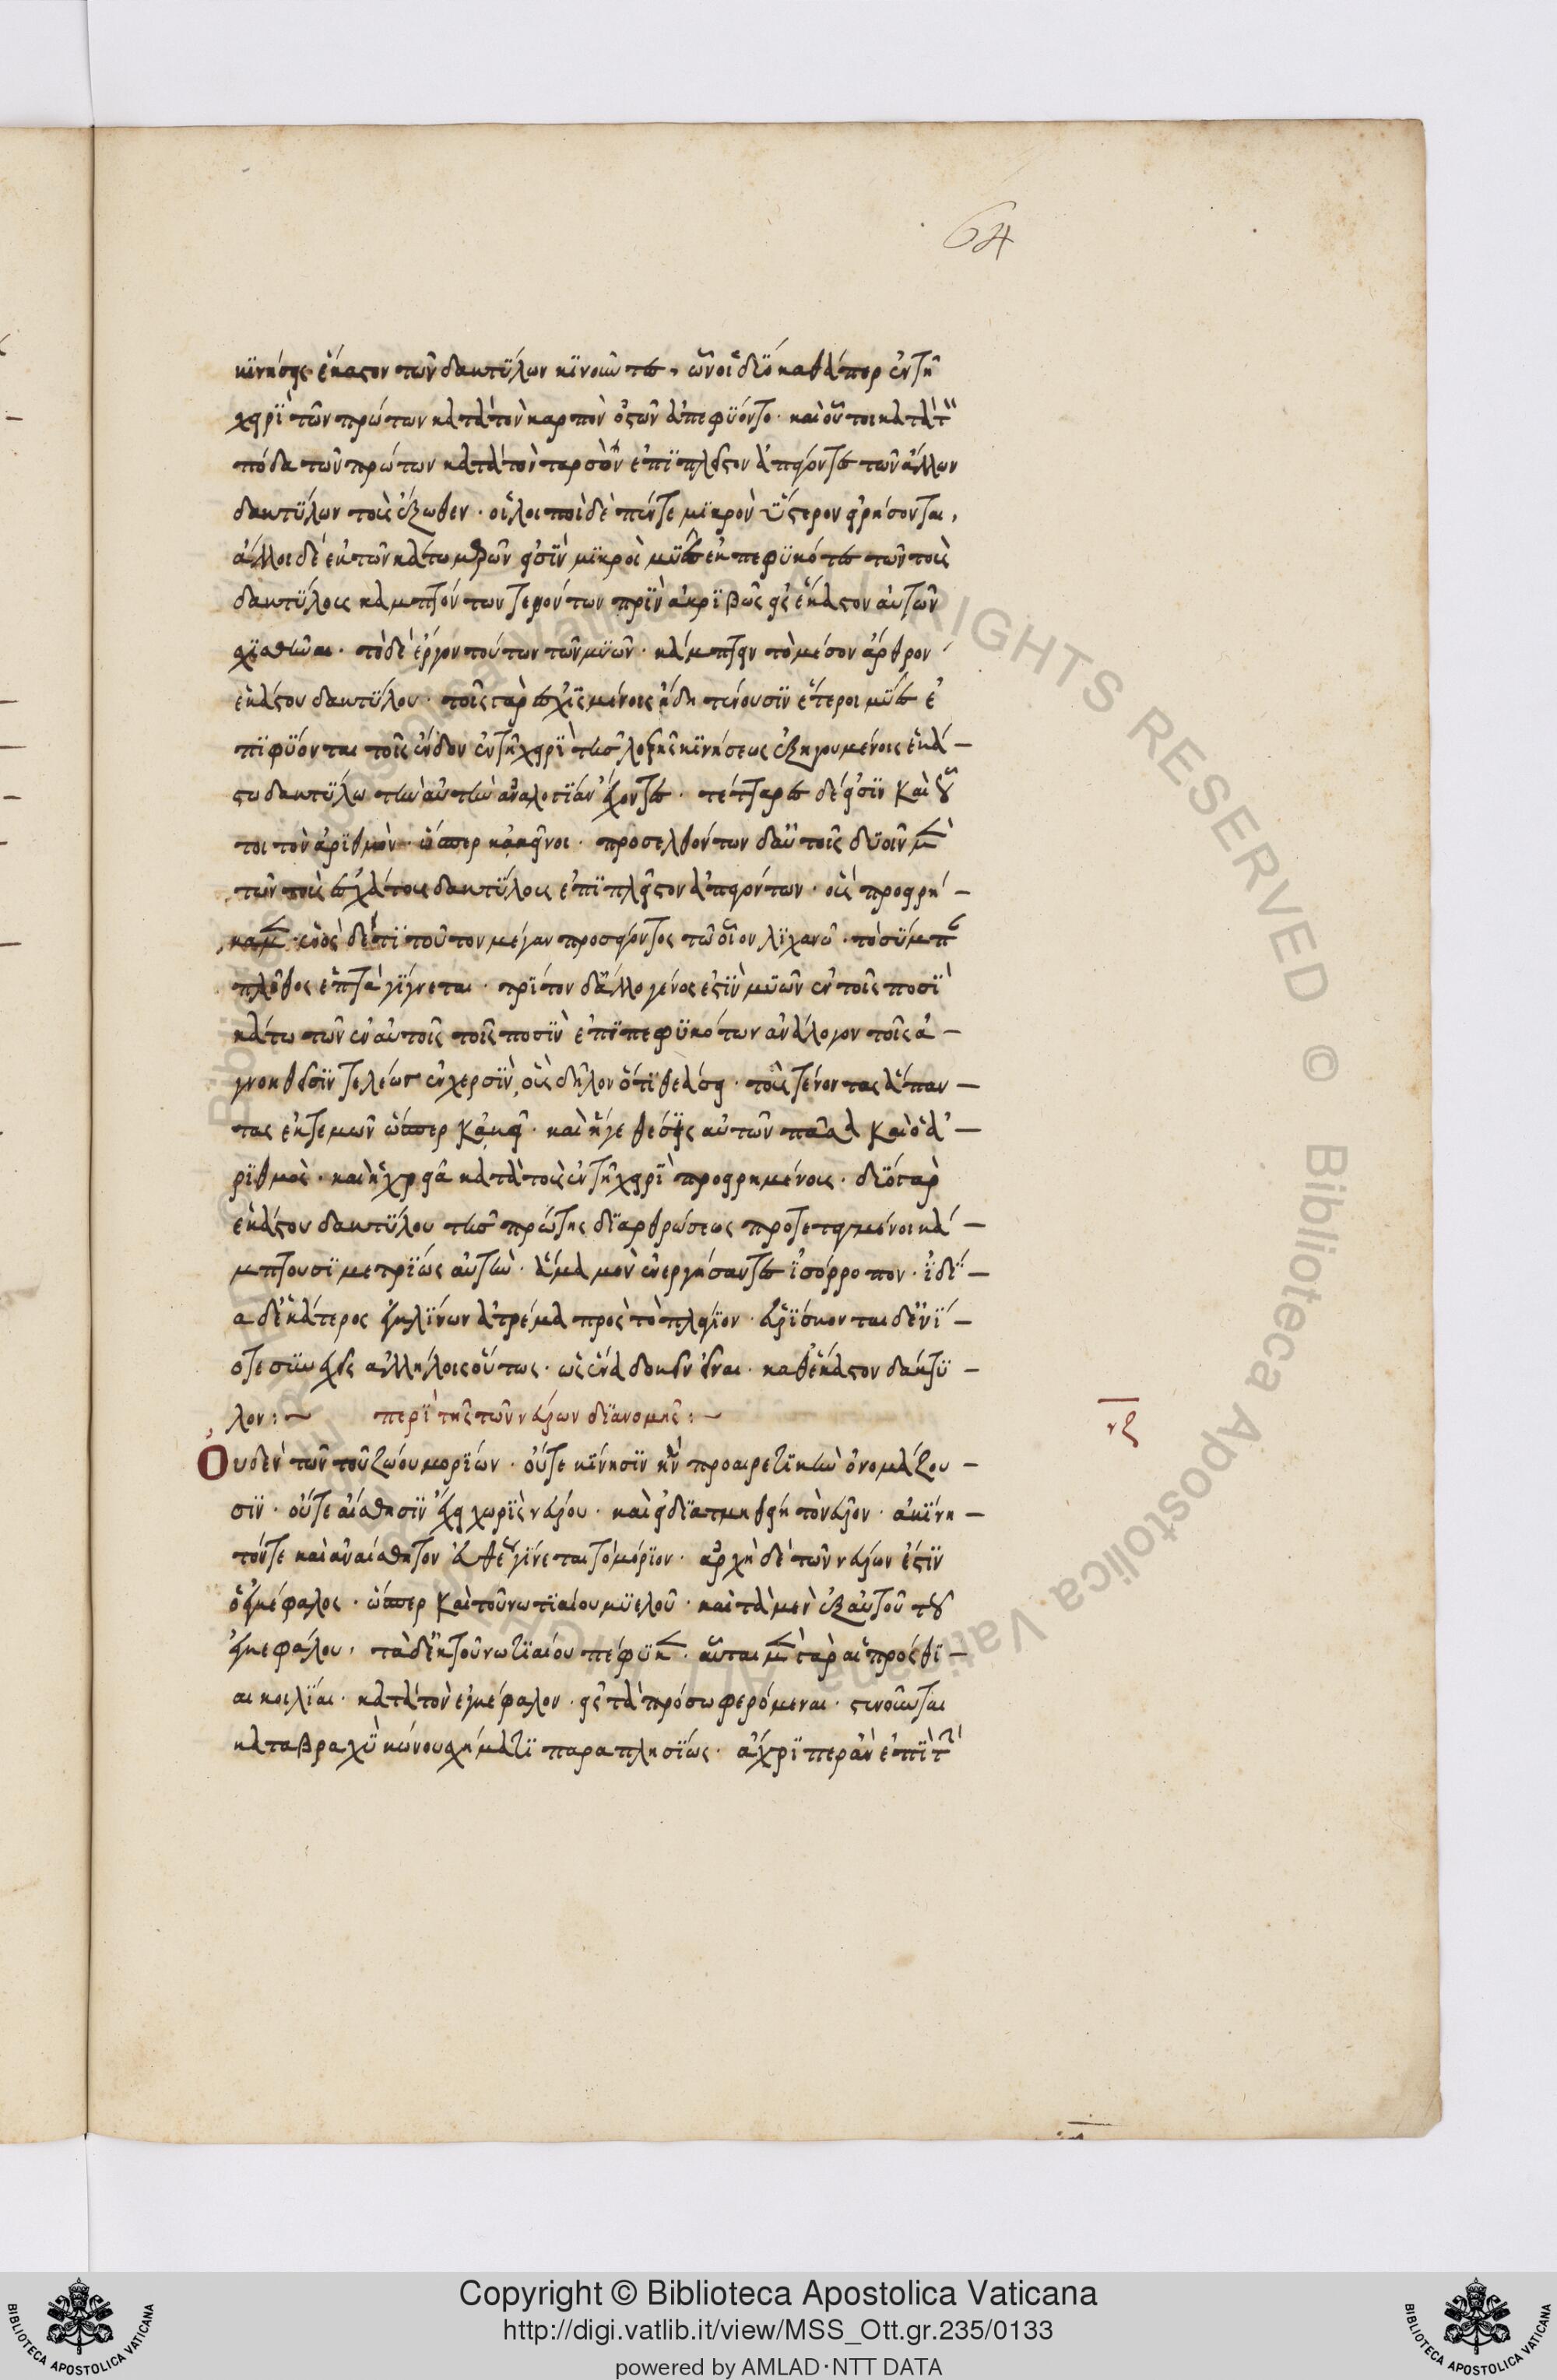 64
κϊνήσεις ἕκαστον τῶν δακτύλων κϊνοῦντες, ὧν οἱ δϋό καθάπερ ἐν τῆ
χειρὶ τῶν πρώτων κατὰ τὸν καρπὸν ὀστῶν ἀπεφύοντο· καὶ οὗτοι κατὰ τὸν
πόδα τῶν πρώτων κατὰ τὸν ταρσὸν ἐπϊπλεῖστον ἀπάγοντες τῶν ἄλλων
δακτύλων τοὺς ἔξωθεν· οἱ λοιποὶ δὲ πέντε μϊκρὸν ὕστερον εἰρήσονται,
ἄλλοι δὲ ἐκ τῶν κάτω μερῶν εἰσὶν μϊκροὶ μύες ἐκπεφυκότες τῶν τοὺς
δακτύλους καμπτόντων τενόντων πρὶν ἀκρϊβῶς εἰς ἕκαστον αὐτῶν
σχϊσθῆναι· τὸ δὲ ἔργον τούτων τῶν μϋῶν· κάμπτειν τὸ μέσον ἄρθρον
ἑκάστου δακτύλου· τοῖς γὰρ ἐσχϊσμένοις ἤδη τένουσϊν ἕτεροι μύες ἐ
πϊφύονται τοῖς ἔνδον ἐν τῆ χειρὶ τῆς λοξῆς κϊνήσεως ἐξηγουμένοις ἑκά–
στω δακτύλω τὴν αὐτὴν ἀναλογϊάν ἔχοντες· τέτταρες δέ εἰσϊν καὶ οὗ
τοι τὸν ἀρϊθμὸν· ὥσπερ κἀκεῖνοι· προσελθόντων δ' αὐτοῖς δϋοῖν μὲν
τῶν τοὺς ἐσχάτους δακτύλους ἐπϊπλεῖστον ἀπαγόντων· οὓς προειρή–
καμεν· ἑνὸς δ' ἐπὶ τοῦτον μέγαν προσάγοντος τῶ οἷον λϊχανῶ· τὸ σύμπαν
πλῆθος ἑπτὰ γίγνεται· τρίτον δ' ἄλλο γένος ἐστὶν μϋῶν ἐν τοῖς ποσὶ
κάτω τῶν ἐν αὐτοῖς τοῖς ποσὶν ἐπϊπεφυκότων ἀνάλογον τοῖς ἀ–
γνοηθεῖσϊν τελέως ἐν χερσὶν, οὓς δῆλον ὅτϊ θεάση· τοὺς τένοντας ἅπαν–
τας ἐκτεμὼν ὥσπερ κἀκεῖ· καὶ ἥγε θέσϊς αὐτῶν πᾶσα καὶ ὁ ἀ–
ρϊθμὸς· καὶ ἡ χρεία κατὰ τοὺς ἐν τῆ χειρὶ προειρημένους· δϋό γὰρ
ἑκάστου δακτύλου τῆς πρώτης δϊαρθρώσεως προτεταγμένοι κά–
μπτουσϊ μετρίως αὐτὴν· ἅμα μὲν ἐνεργήσαντες ἰσόρροπον· ἰδί–
α δ' ἑκάτερος ἐγκλίνων ἀτρέμα πρὸς τὸ πλάγϊον· εὑρίσκονται δ' ἐνί–
οτε συνεχεῖς ἀλλήλοις οὕτως· ὡς ἕνα δοκεῖν εἶναι· καθ' ἕκαστον δάκτυ–
λον:~ περὶ τῆς τῶν νεύρων δϊανομῆς:~
νζ
Ουδὲν τῶν τοῦ ζώου μορίων· οὔτε κίνησϊν ἣν προαιρετϊκὴν ὀνομάζου–
σϊν· οὔτε αἴσθησϊν ἔχει χωρὶς νεύρου· καὶ εἰ δϊατμηθείη τὸ νεῦρον· ἀκίνη–
τόν τε καὶ ἀναίσθητον εὐθὺ γίνεται τὸ μόρϊον· ἀρχὴ δὲ τῶν νεύρων ἐστὶν
ὁ ἐγκέφαλος· ὥσπερ καὶ τοῦ νωτϊαίου μϋελοῦ· καὶ τὰ μὲν ἐξ αὐτοῦ τοῦ
ἐγκεφάλου, τὰ δ' ἐκ τοῦ νωτϊαίου πέφυκεν· αὗται μὲν γὰρ αἱ πρόσθϊ–
αι κοιλίαι· κατὰ τὸν ἐγκέφαλον· εἰς τὰ πρόσω φερόμεναι· στενοῦνται
καταβραχὺ κώνου σχήματϊ παραπλησίως· ἄχρϊ περ ἂν ἐπὶ τὸ
Copyright © Biblioteca Apostolica Vaticana
http://digi.vatlib.it/view/MSS_Ott.gr.235/0133
powered by AMLAD·NTT DATA